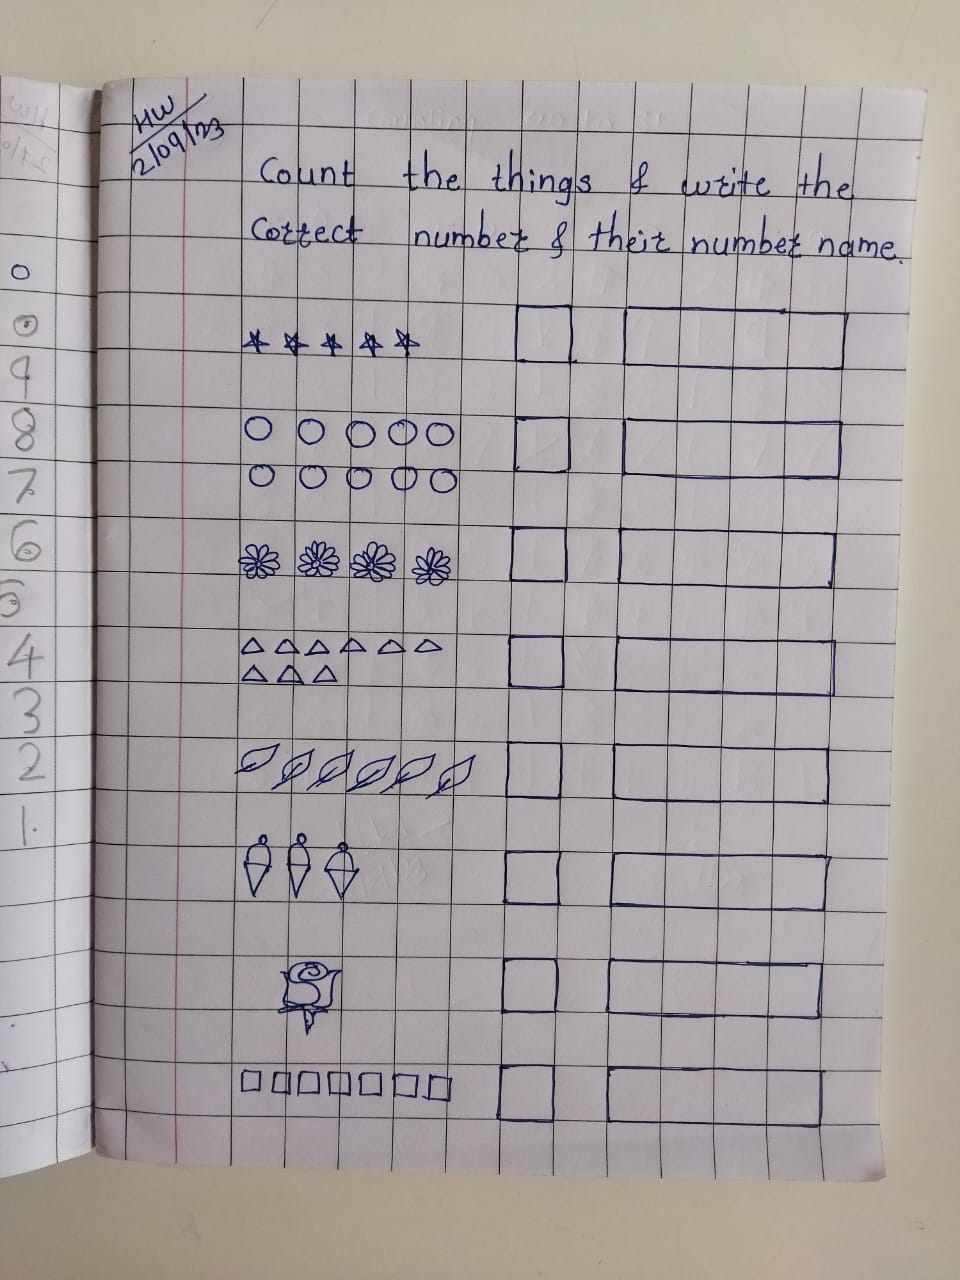 HW
2/09/23
Count the things & write the
correct number & their number name.
0
9
8
7
6
5
4
3
2
1